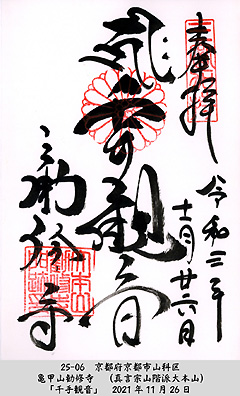 奉拝
令和三年
十一月廿六日
千手観音
勧修寺
25-06 京都府京都市山科区
亀甲山勧修寺 (真言宗山階派大本山)
「千手観音」 2021年11月26日